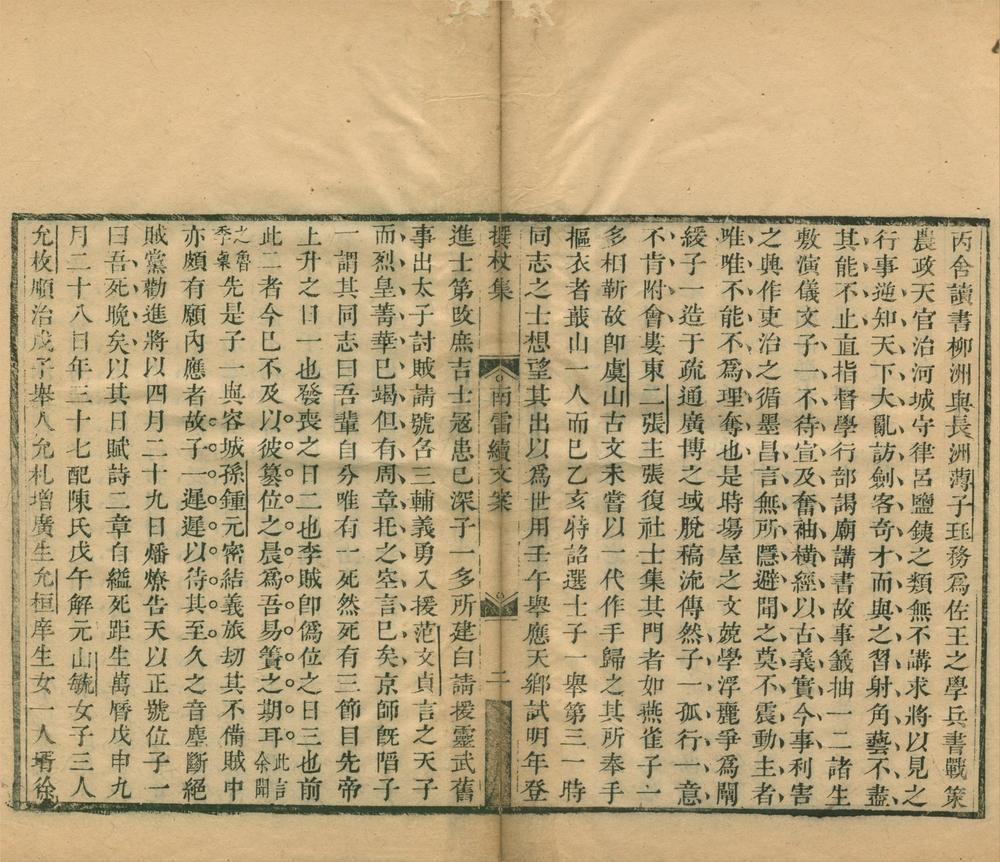 丙舍讀書柳洲與長洲薄子珏務為佐王之學兵書戰策
農政天官治河城守律呂鹽鐵之類無不講求將以見之
行事逆知天下大亂訪劍客奇才而與之習射角藝不盡
其能不止直指督學行部謁廟講書故事籤抽一二諸生
敷演儀文子一不待宣及奮袖橫經以古義實今事利害
之與作吏治之循墨昌言無所隱避聞之莫不震動主者
唯唯不能不為理奪也是時場屋之文兢學浮麗爭為闡
緩子一造于疏通廣博之域脫稿流傳然子一孤行一意
不肯附會婁東二張主張復社士集其門者如燕雀子一
多相靳故卽虞山古文未嘗以一代作手歸之其所奉手
摳衣者蕺山一人而已乙亥特詔選士子一舉第三一時
同志之士想望其出以為世用壬午舉應天鄉試明年登
撰杖集
南雷續文案
二
進士第改庶吉士寇患已深子一多所建白請援靈武舊
事出太子討賊請號召三輔義勇入援范文貞言之天子
而烈皇菁華已竭但有周章托之空言已矣京師旣陷子
一謂其同志曰吾輩自分唯有一死然死有三節目先帝
上升之日一也發喪之日二也李賊卽僞位之日三也前
此二者今已不及以彼篡位之晨為吾易簀之期耳此言余聞
之魯季㮚先是子一與容城孫鍾元密結義旅刧其不備賊中
亦頗有願內應者故子一遲遲以待其至久之音塵斷絕
賊黨勸進將以四月二十九日燔燎告天以正號位子一
曰吾死晚矣以其日賦詩二章自縊死距生萬曆戊申九
月二十八日年三十七配陳氏戊午解元山毓女子三人
允枚順治戊子舉人允札增廣生允桓庠生女一人壻徐